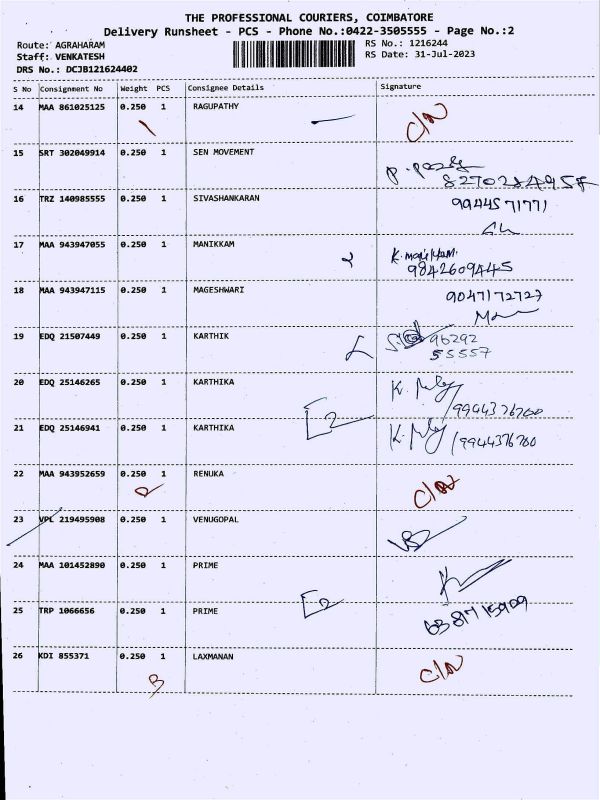 THE PROFESSIONAL COURIERS, COIMBATORE
Delivery Runsheet - PCS - Phone No.:0422-3505555 - Page No.:2
Route: AGRAHARAM RS No.: 1216244
Staff: VENKATESH RS Date: 31-Jul-2023
DRS No.: DCJB121624402
S No Consignment No Weight PCS Consignee Details Signature
14 MAA 861025125 0.250 1 RAGUPATHY C/N
1
15 SRT 302049914 0.250 1 SEN MOVEMENT
16 TRZ 140985555 0.250 1 SIVASHANKARAN 9944571771
17 MAA 943947055 0.250 1 MANIKKAM K. manikam.
2 9842609445
18 MAA 943947115 0.250 1 MAGESHWARI 9047172727
19 EDQ 21507449 0.250 1 KARTHIK 96292
55557
20 EDQ 25146265 0.250 1 KARTHIKA
9944376700
21 EDQ 25146941 0.250 1 KARTHIKA 9944376700
22 MAA 943952659 0.250 1 RENUKA C/N
2
23 VPL 219495908 0.250 1 VENUGOPAL
24 MAA 101452890 0.250 1 PRIME
25 TRP 1066656 0.250 1 PRIME
26 KDI 855371 0.250 1 LAXMANAN C/N
3